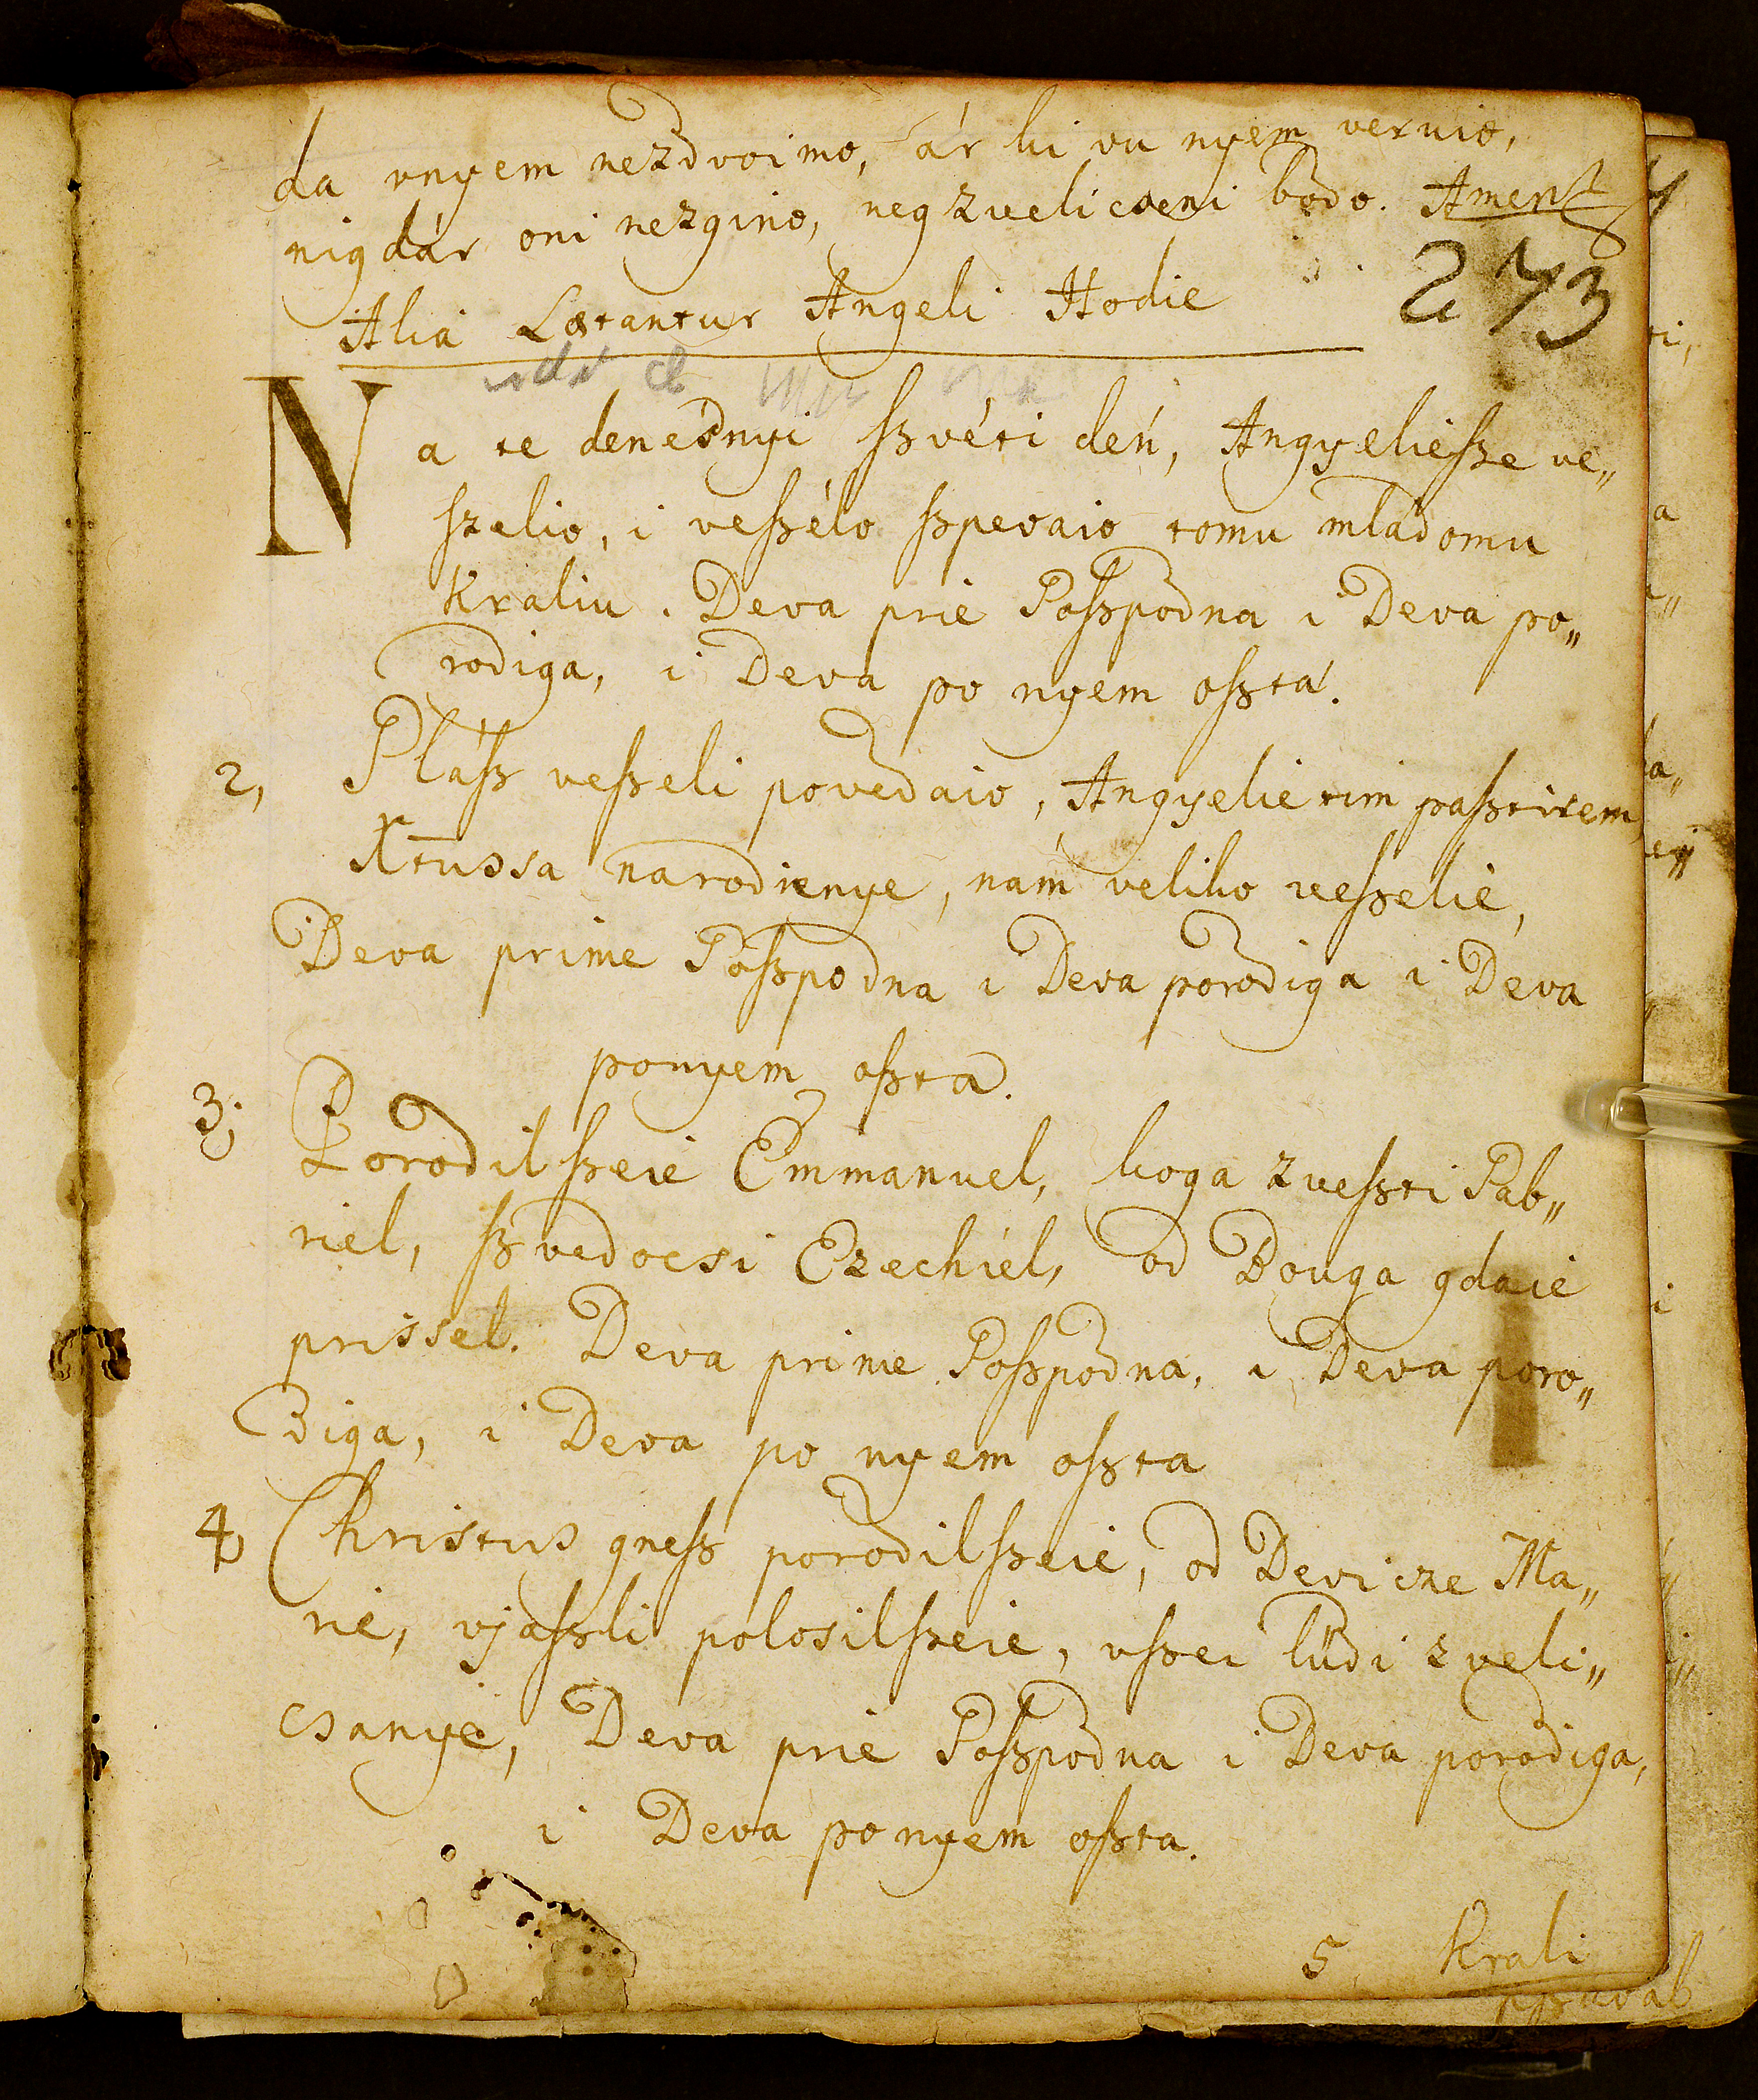 da vnyem nezdvoimo, ár ki vu nyem veruio,
nigdár oni nezgino, neg zvelicseni bodo. Amen
273
Alia Lætantur Angeli Hodie
Na te denésnyi ſzvéti dén, Angyelieſze ve„
ſzelio, i veſzélo ſzpevaio tomu mladomu
Kraliu. Deva prie Goſzpodna i Deva po„
rodiga, i Deva po nyem oſzta.
2, Gláſz veſzeli povedaio, Angyelie tim paſztirem,
Xtussa narodienye, nam veliko veſzelie,
Deva prime Goſzpodna i Deva porodiga i Deva
ponyem oſzta.
3; Porodilſzeie Emmanuel, koga zveſzti Gab„
riel, ſzvedocsi Ezechiél, od Bouga gdaie
prissel. Deva prime Goſzpodna, i Deva poro„
diga, i Deva po nyem oſzta
4, Christus gneſz porodilſzeie, od Devicze Ma„
rie, vjaſzli polosilſzeie, vſzei lüdi zveli„
csanye, Deva prie Goſzpodna i Deva porodiga,
i Deva po nyem oſzta.
5 Krali